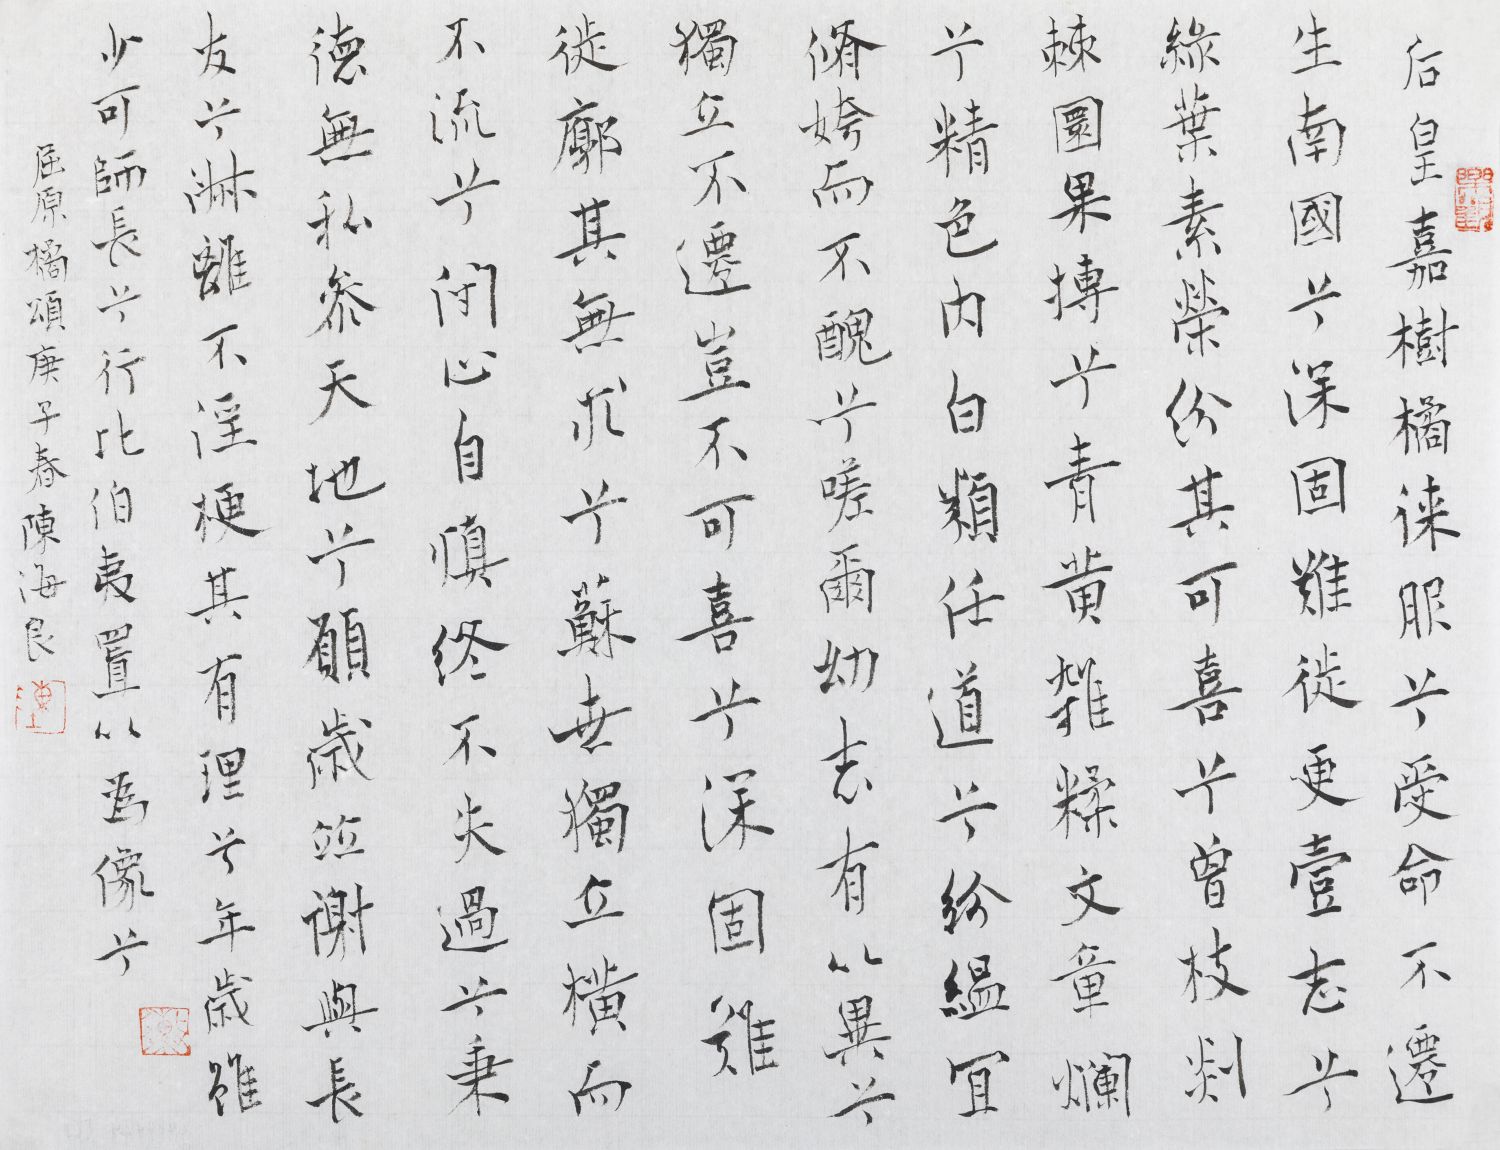 后皇嘉樹橘徠服兮受命不遷
生南國兮深固難徙更壹志兮
綠葉素榮紛其可喜兮曾枝剡
棘圜果摶兮青黄雜糅文章爛
兮精色内白類任道兮紛緼宜
脩姱而不醜兮嗟爾幼志有以異兮
獨立不遷豈不可喜兮深固難
徙廓其無求兮蘇世獨立横而
不流兮閉心自慎終不失過兮秉
德無私參天地兮願歲並謝與長
友兮淋離不淫梗其有理兮年歲雖
少可師長兮行比伯夷置以為像兮
屈原橘頌庚子春陳海良